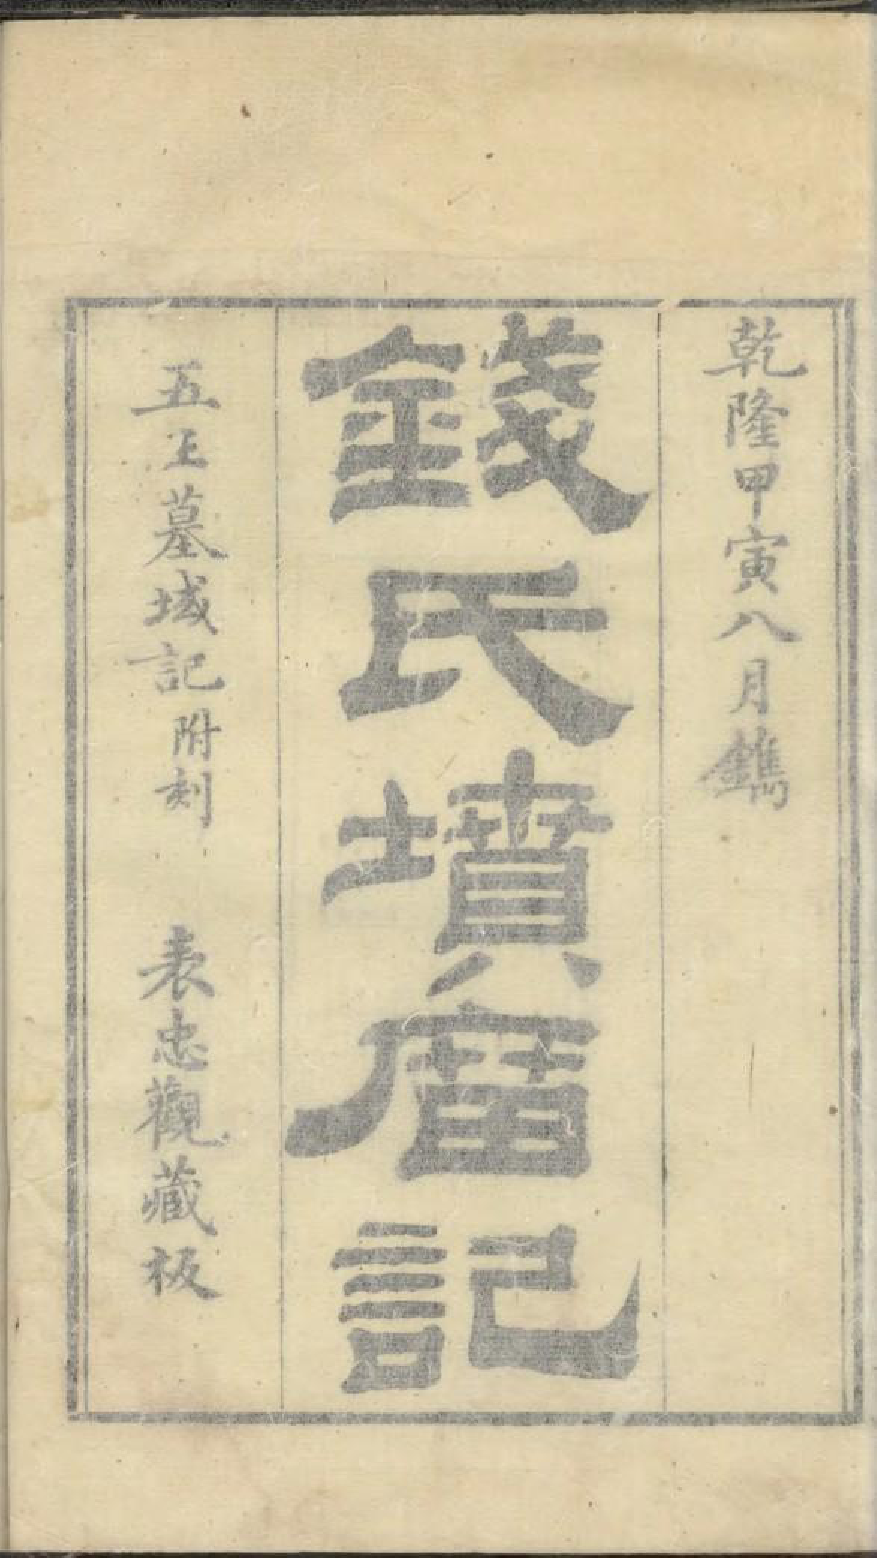 乾隆甲寅八月鐫
錢氏墳庿記
五王墓域記附刻　表忠觀藏板